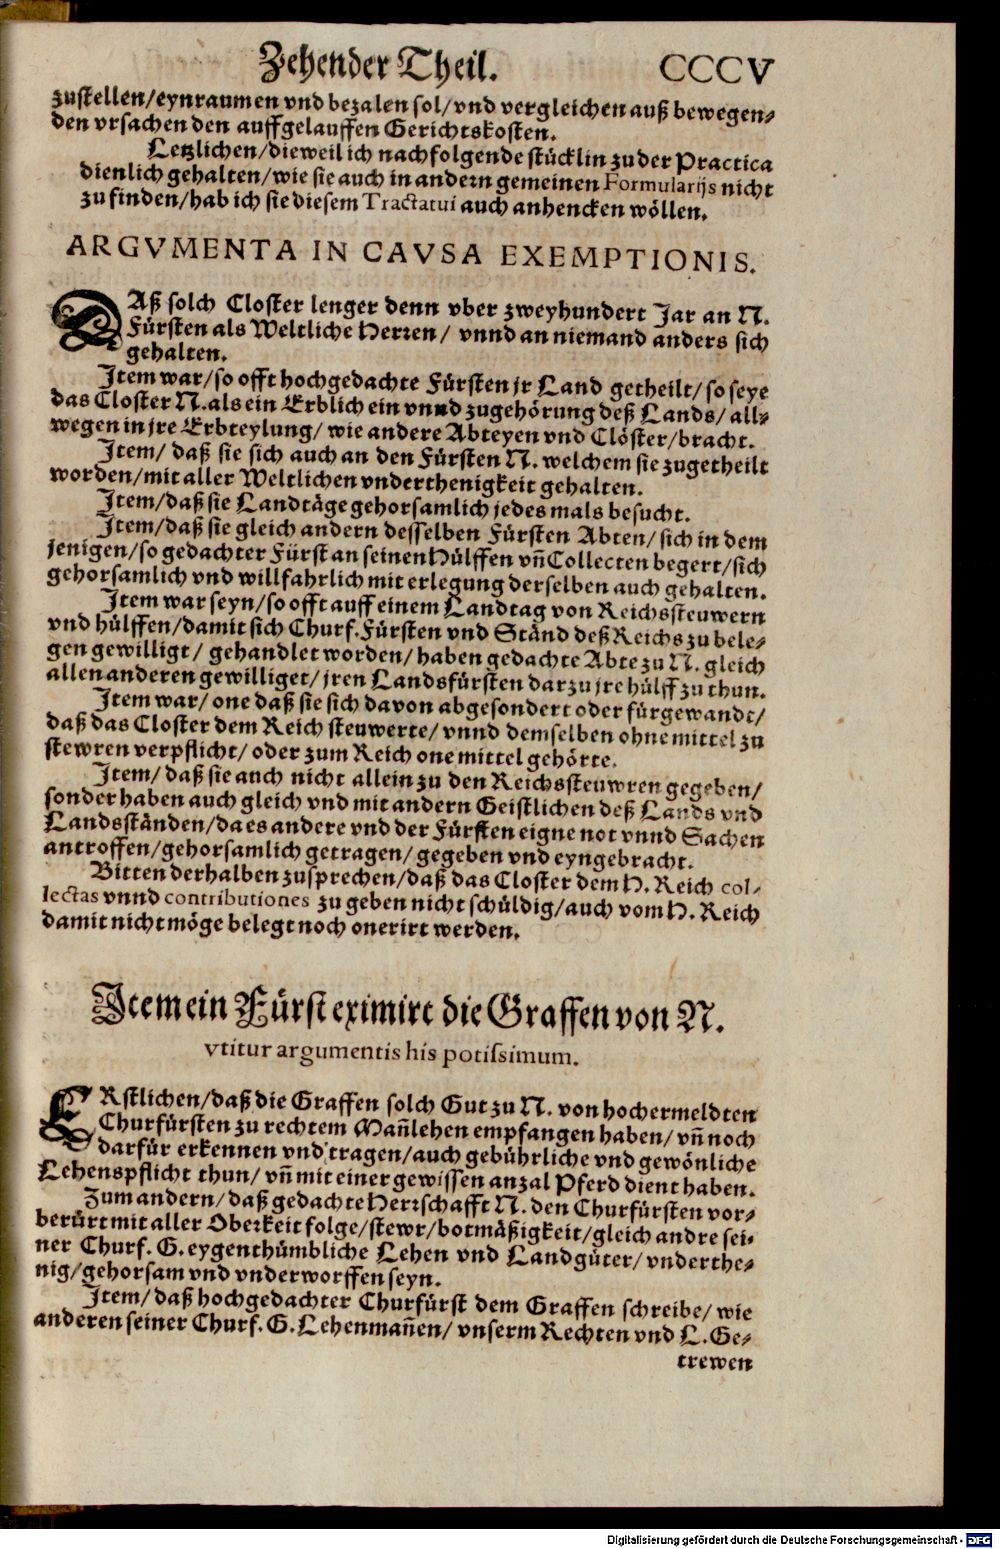 Zehender Theil. CCCV
zustellen/eynraumen vnd bezalen sol/vnd vergleichen auß bewegen⸗
den vrsachen den auffgelauffen Gerichtskosten.
Letzlichen/dieweil ich nachfolgende stücklin zu der Practica
dienlich gehalten/wie sie auch in andern gemeinen Formularijs nicht
zu finden/hab ich sie diesem Tractatui auch anhencken wöllen.
ARGVMENTA IN CAVSA EXEMPTIONIS.
DAß solch Closter lenger denn vber zweyhundert Jar an N.
Fürsten als Weltliche Herren/ vnnd an niemand anders sich
gehalten.
Item war/so offt hochgedachte Fürsten jr Land getheilt/so seye
das Closter N.als ein Erblich ein vnnd zugehörung deß Lands/all⸗
wegen in jre Erbteylung/wie andere Abteyen vnd Clöster/bracht.
Item/ daß sie sich auch an den Fürsten N. welchem sie zugetheilt
worden/mit aller Weltlichen vnderthenigkeit gehalten.
Item/daß sie Landtäge gehorsamlich jedes mals besucht.
Item/daß sie gleich andern desselben Fürsten Abten/sich in dem
jenigen/so gedachter Fürst an seinen Hülffen vñ Collecten begert/sich
gehorsamlich vnd willfahrlich mit erlegung derselben auch gehalten.
Item war seyn/so offt auff einem Landtag von Reichssteuwern
vnd hülffen/damit sich Churf.Fürsten vnd Ständ deß Reichs zu bele⸗
gen gewilligt/ gehandlet worden/haben gedachte Abte zu N. gleich
allen anderen gewilliget/jren Landsfürsten darzu jre hülff zu thun.
Item war/one daß sie sich davon abgesondert oder fürgewandt/
daß das Closter dem Reich steuwerte/vnnd demselben ohne mittel zu
stewren verpflicht/oder zum Reich one mittel gehörte.
Item/daß sie auch nicht allein zu den Reichssteuwren gegeben/
sonder haben auch gleich vnd mit andern Geistlichen deß Lands vnd
Landsständen/da es andere vnd der Fürsten eigne not vnnd Sachen
antroffen/gehorsamlich getragen/gegeben vnd eyngebracht.
Bitten derhalben zusprechen/daß das Closter dem H. Reich col-
lectas vnnd contributiones zu geben nicht schüldig/auch vom H. Reich
damit nicht möge belegt noch onerirt werden.
Item ein Fürst eximirt die Graffen von N.
vtitur argumentis his potissimum.
ERstlichen/daß die Graffen solch Gut zu N. von hochermeldten
Churfürsten zu rechtem Mañlehen empfangen haben/vñ noch
darfür erkennen vnd tragen/auch gebührliche vnd gewönliche
Lehenspflicht thun/vñ mit einer gewissen anzal Pferd dient haben.
Zum andern/daß gedachte Herrschafft N. den Churfürsten vor⸗
berürt mit aller Oberkeit folge/stewr/botmäßigkeit/gleich andre sei⸗
ner Churf. G. eygenthümbliche Lehen vnd Landgüter/vnderthe⸗
nig/gehorsam vnd vnderworffen seyn.
Item/daß hochgedachter Churfürst dem Graffen schreibe/wie
anderen seiner Churf. G. Lehenmañen/vnserm Rechten vnd L. Ge⸗
trewen
Digitalisierung gefördert durch die Deutsche Forschungsgemeinschaft - DFG